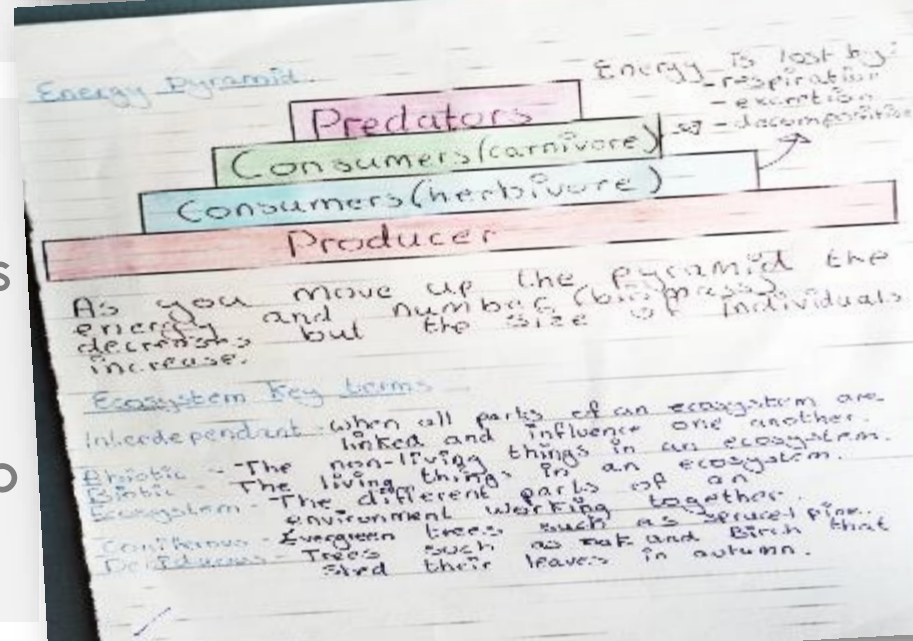 Energy Pyramid.
Energy is lost by:
- respiration
- excretion
- decomposition
Predators
Consumers (carnivore)
Consumers (herbivore)
Producer
As you move up the pyramid the
energy and number (biomass)
decreases but the size of individuals
increase.
Ecosystem Key terms
Interdependant - when all parts of an ecosystem are
linked and influence one another.
- The non-living things in an ecosystem.
Biotic - The living things in an ecosystem.
Ecosystem - The different parts of an
environment working together.
Coniferous - Evergreen trees such as spruce + pine.
Deciduous - Trees such as oak and Birch that
shed their leaves in autumn.